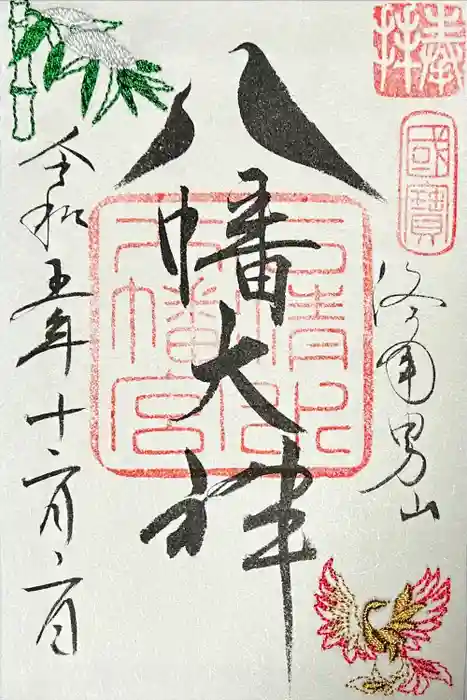 奉拝
國寶
洛南男山
八幡大神
石清水八幡宮
令和五年十二月二日